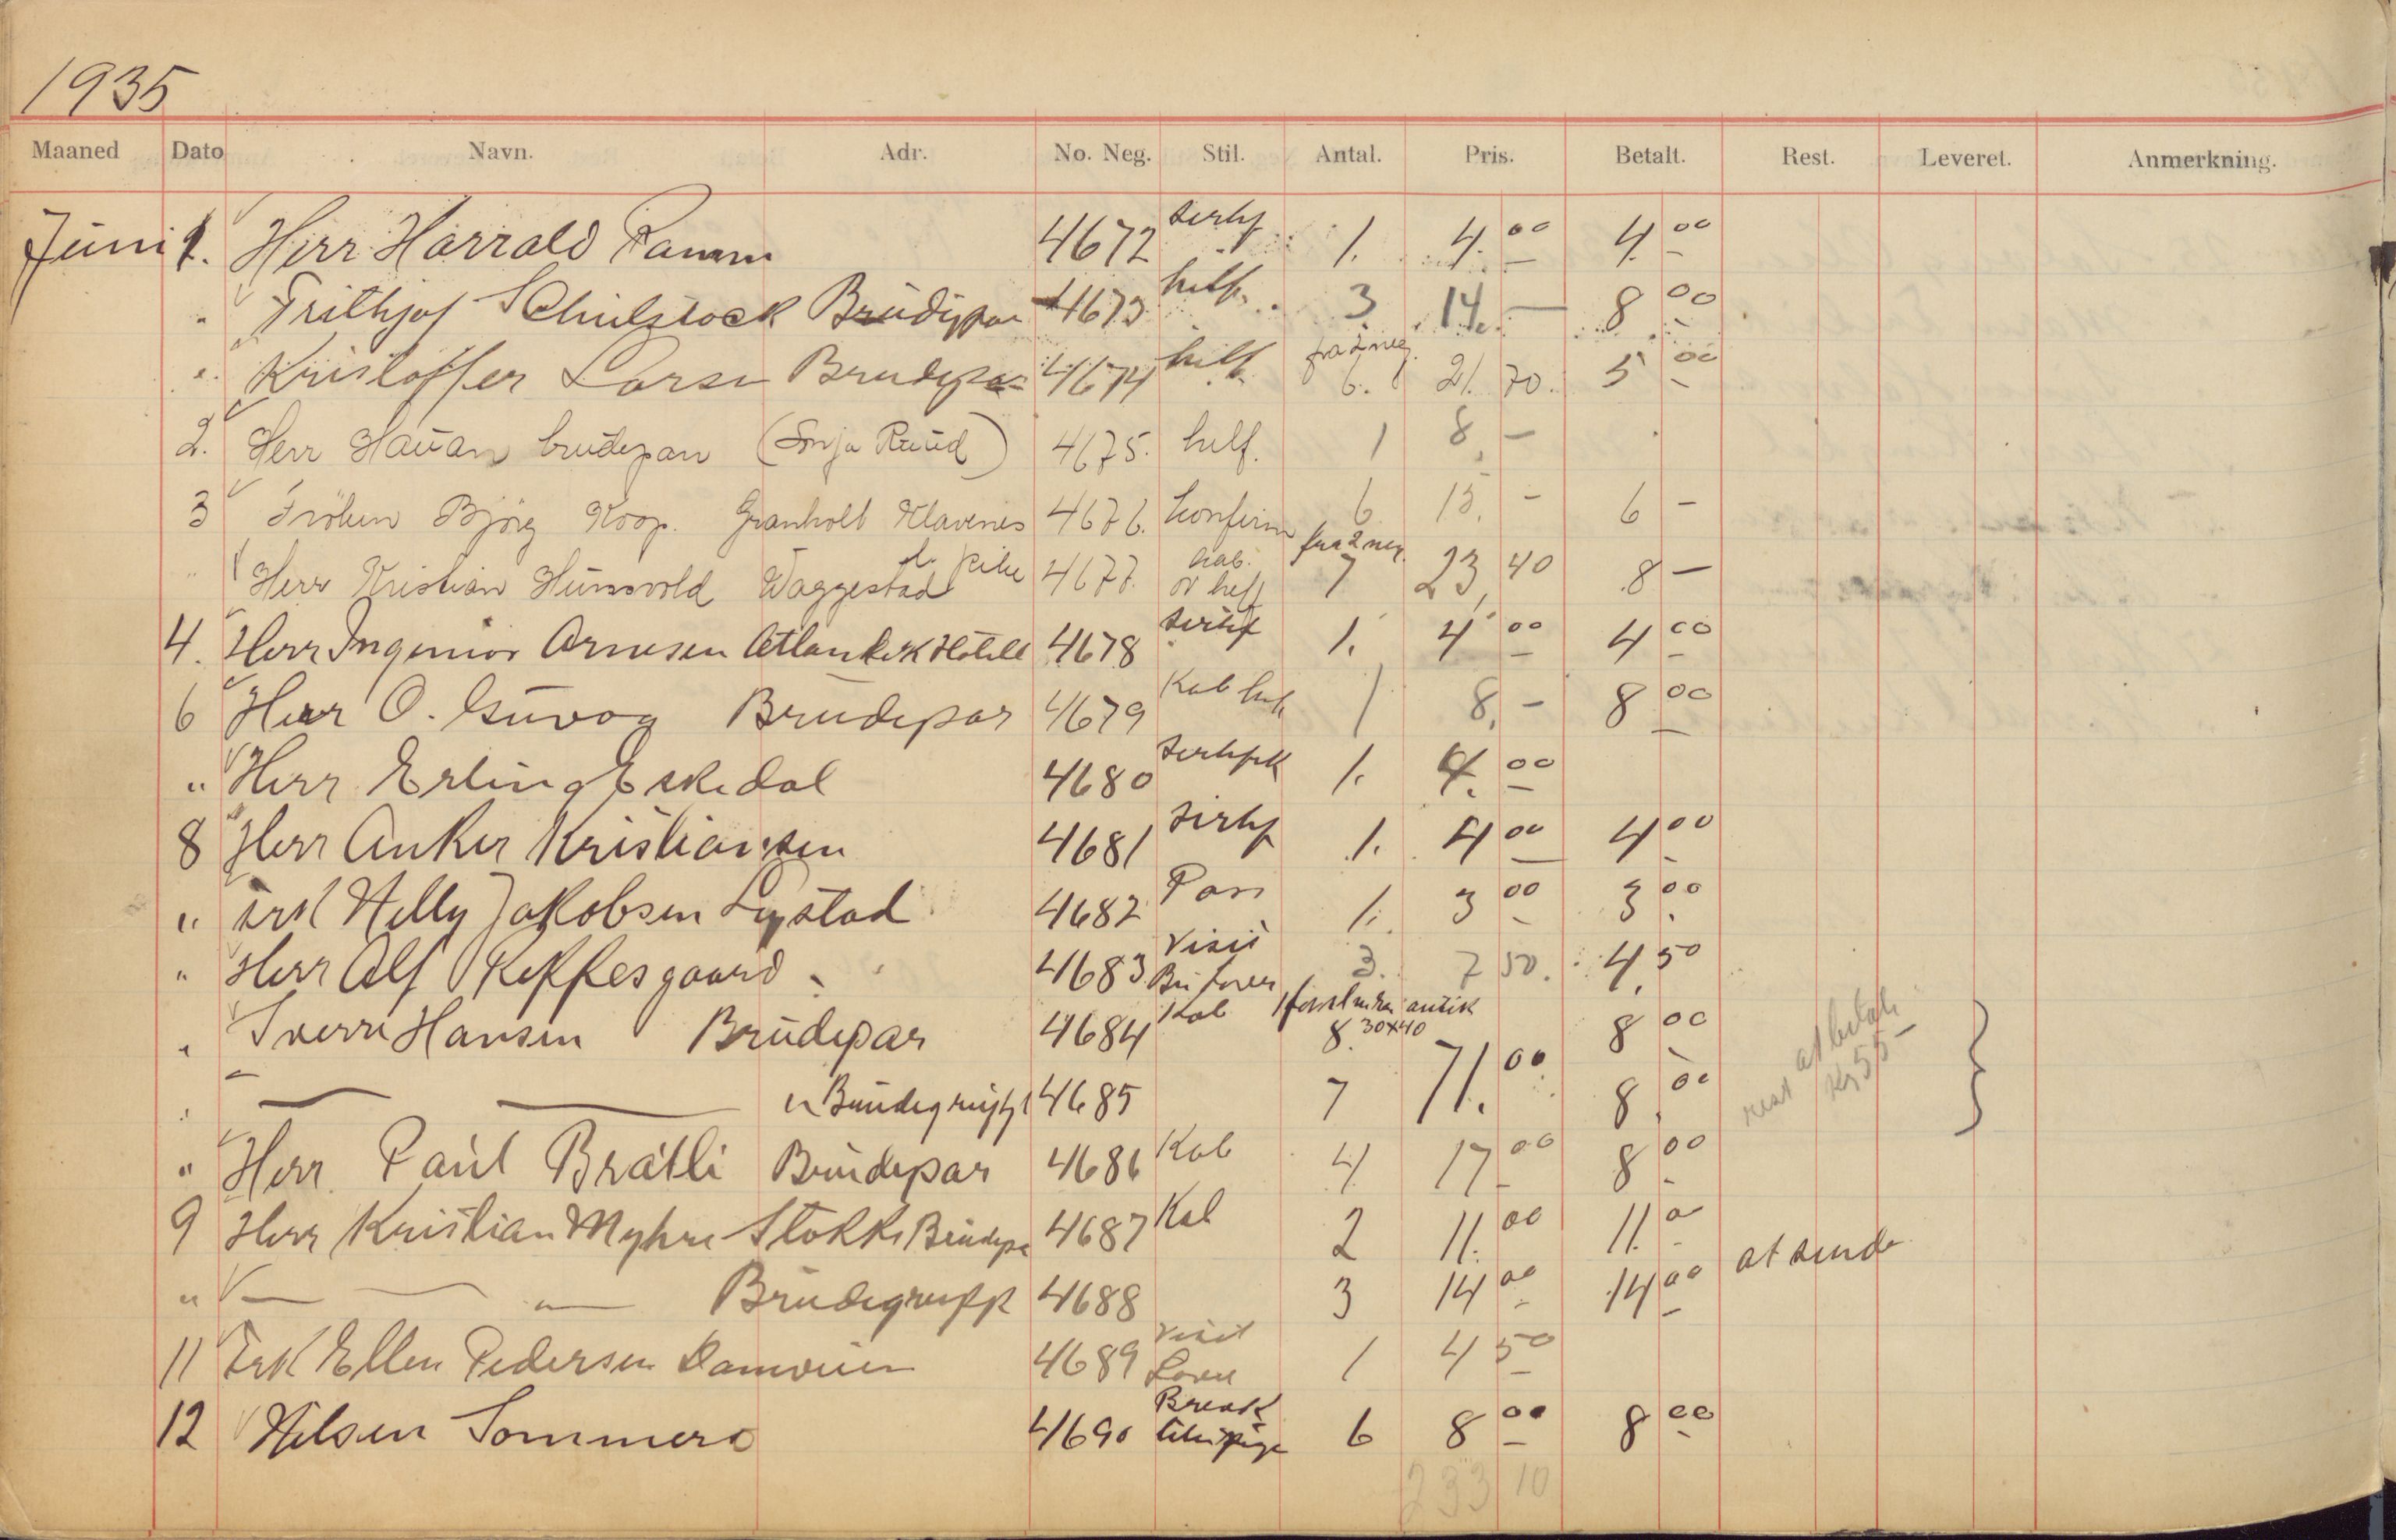 1935
Maaned Dato Navn. Adr. No. Neg. Stil. Antal. Pris. Betalt. Rest. Leveret. Anmerkning.
Juni 1. Herr Harrald Ramm 4672 sertif 1. 4.00 4.00
" Frithjof Brudepar 4673 helf. 3 14. — 8 00
" Kristoffer Larsen Brudepar 4674 helf. fra 2 neg. 6. 21. 70. 5 00
2. Herr Hauan brudepar (Sonja Ruud) 4675. helf. 1 8, -
3 Fröken Björg Koop. Granholt Klavenes 4676. konfirm 6 15. - 6 -
" Herr Kristian Hunsvold Waggestad l. pike 4677. kab. & helf fra 2 neg. 7 23, 40 8 —
4. Herr Ingeniör Arnesen Atlantik Hotell 4678 sertif 1. 4 00 4 00
6 Herr O. Brudepar 4679 Kab helf 1 8, - 8 00
" Herr Erling Eskedal 4680 1. 4. 00
8 Herr Anker Kristiansen 4681 sertif 1. 4 00 4 00
" Frk Helly Jakobsen Lystad 4682 Pass 1. 3 00 3 00
" Herr Alf 4683 Visit 3. 7 50. 4. 50
" Sverre Hansen Brudepar 4684 Kab 1 antik 8. 30x40 8 00
" — — " Brudegruppe 4685 7 71. 00 8. 00 rest at betale Kr 55 —
" Herr Paul Bråtli Brudepar 4686 Kab 4 17 00 8 00
9 Herr Kristian Myhre Stokke Brudepar 4687 Kab 2 11. 00 11. 00
" — " — Brudegrupp 4688 3 14 00 14 00 at sende
11 Frk Ellen Pedersen 4689 Visit 1 4 50
12 Nilsen Sommero 4690 6 8 00 8 00
233 10